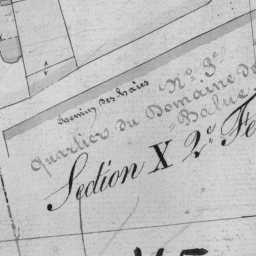 Chemin des haies
N.º 3e
Quartier du Domaine de
Balue
Section X 2.e Fe